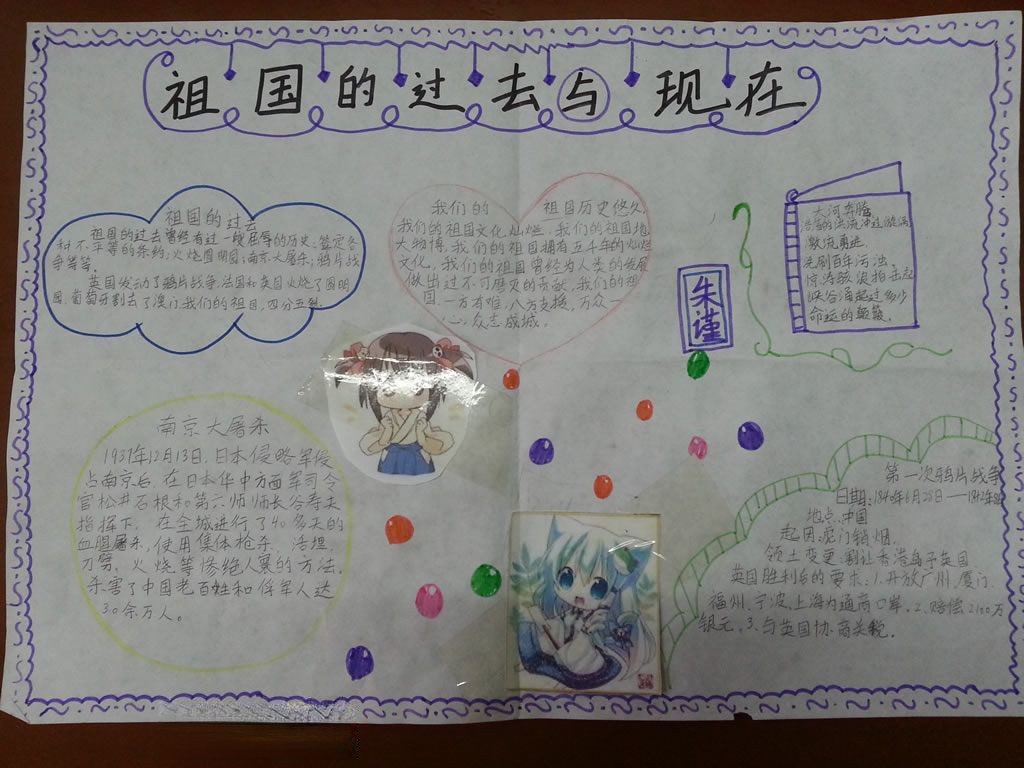 祖国的过去与现在
祖国的过去
祖国的过去曾经有过一段屈辱的历史:签定各
种不平等的条约;火烧圆明园;南京大屠杀;鸦片战
争等等。
英国发动了鸦片战争,法国和英国火烧了圆明
园,葡萄牙割去了澳门我们的祖国,四分五裂
我们的 祖国历史悠久,
我们的祖国文化灿烂,我们的祖国地
大物博,我们的祖国拥有五千年的灿烂
文化,我们的祖国曾经为人类的发展
做出过不可磨灭的贡献,我们的祖
国,一方有难,八方支援,万众一
心,众志成城。
朱谨
大河奔腾
浩荡的洪流冲过漩涡
激流勇进
洗刷百年污浊
惊涛骇浪拍击起
峡谷涌起过多少
命运的颠簸
南京大屠杀
1937年12月13日,日本侵略军侵
占南京后,在日本华中方面军司令
官松井石根和第六师师长谷寿夫
指挥下,在全城进行了40多天的
血腥屠杀,使用集体枪杀、活埋、
刀劈、火烧等惨绝人寰的方法,
杀害了中国老百姓和俘军人达
30余万人。
第一次鸦片战争
日期:1840年6月28日—1842年8
地点:中国
起因:虎门销烟
领土变更:割让香港岛予英国
英国胜利后的要求:1.开放广州、厦门、
福州、宁波、上海为通商口岸。2、赔偿2100万
银元。3、与英国协商关税。